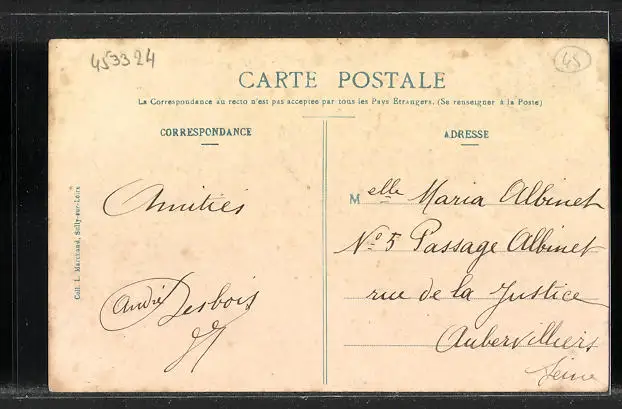 453324
45
CARTE POSTALE
La Correspondance au recto n'est pas acceptée par tous les Pays Etrangers. (Se renseigner à la Poste)
CORRESPONDANCE
ADRESSE
Coll. L. Marchand, Sully-sur-Loire
Amitiés
André Desbois
Melle Maria Albinet
No 5 Passage Albinet
rue de la Justice
Aubervilliers
Seine